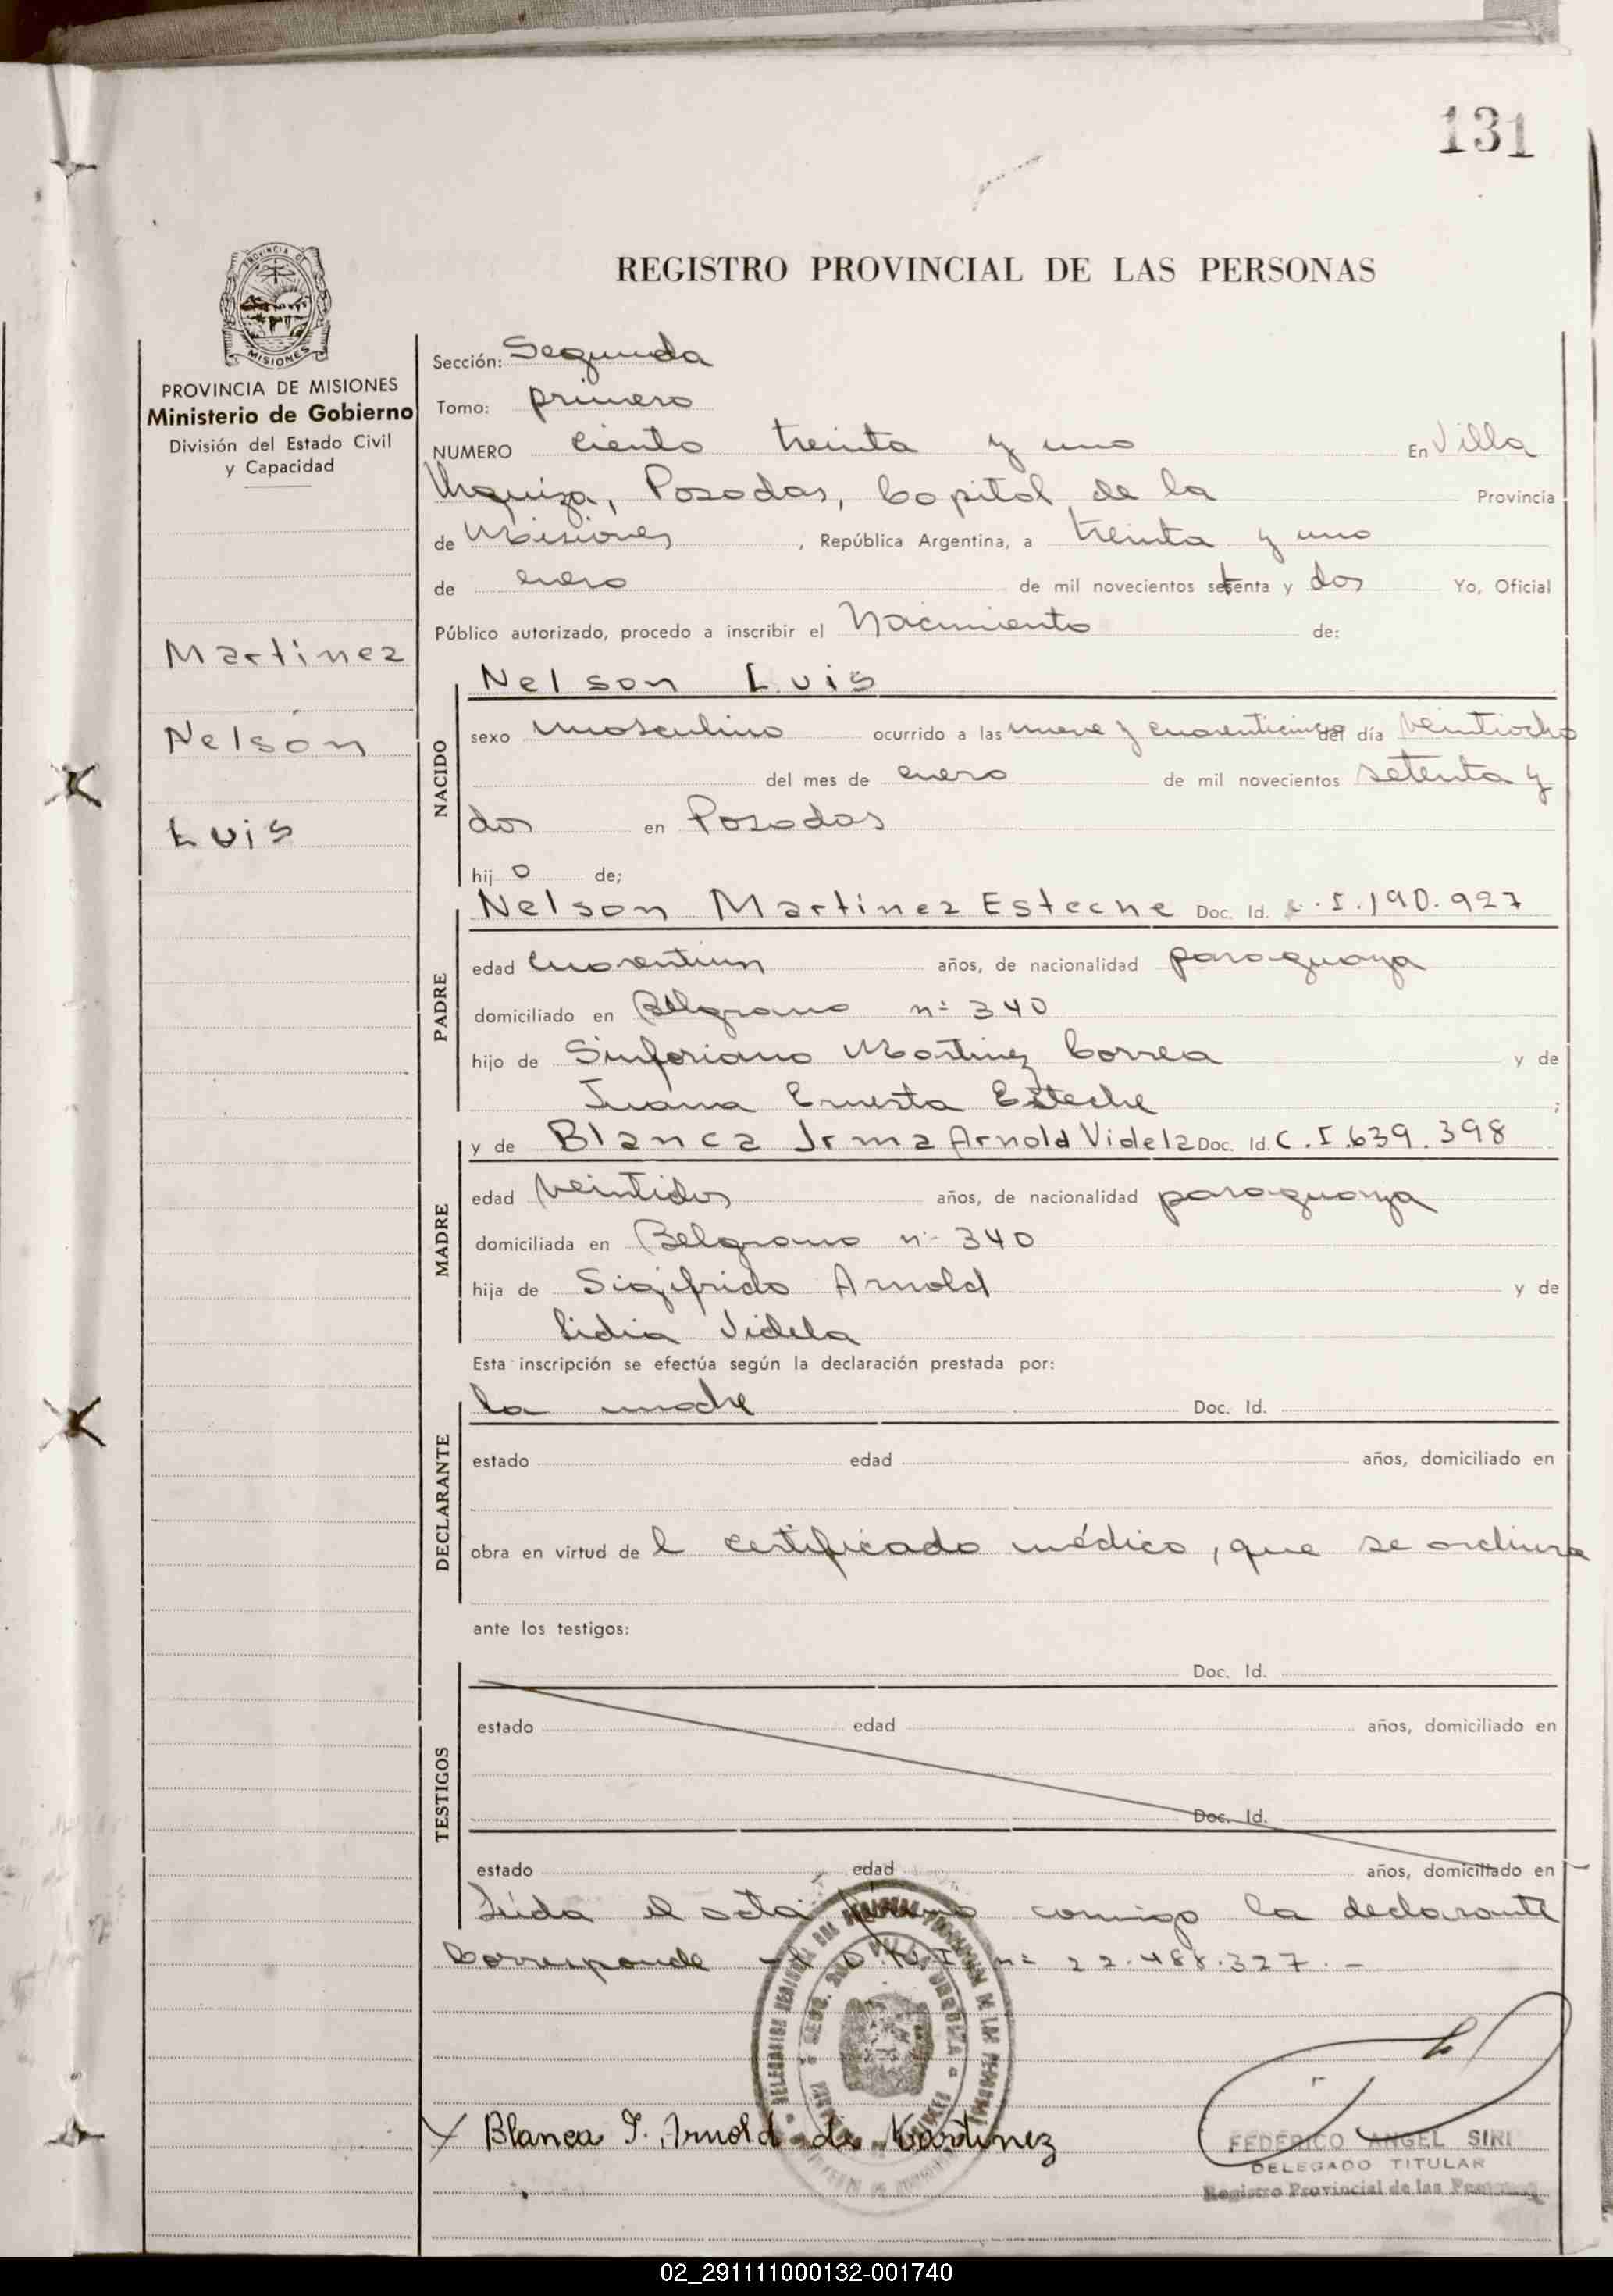 131
REGISTRO PROVINCIAL DE LAS PERSONAS
PROVINCIA DE MISIONES
Ministerio de Gobierno
División del Estado Civil
y Capacidad
Martinez
Nelson
Luis
Sección: Segunda
Tomo: primero
NUMERO ciento treinta y uno En Villa
Urquiza, Posadas, Capital de la Provincia
de Misiones, República Argentina, a treinta y uno
de enero de mil novecientos setenta y dos Yo, Oficial
Público autorizado, procedo a inscribir el Nacimiento de:
NACIDO
Nelson Luis
sexo masculino ocurrido a las nueve y cuarenticinco del día veintiocho
del mes de enero de mil novecientos setenta y
dos en Posadas
hijo de;
PADRE
Nelson Martinez Esteche Doc. Id. C.I.190.927
edad cuarentiun años, de nacionalidad paraguaya
domiciliado en Belgrano nº 340
hijo de Sinforiano Martinez Correa y de
Juana Ernesta Esteche ;
MADRE
y de Blanca Irma Arnold Videla Doc. Id. C.I.639.398
edad veintidos años, de nacionalidad paraguaya
domiciliada en Belgrano nº 340
hija de Sigifrido Arnold y de
Lidia Videla
Esta inscripción se efectúa según la declaración prestada por:
DECLARANTE
la madre Doc. Id.
estado edad años, domiciliado en
obra en virtud del certificado médico, que se archiva
ante los testigos:
TESTIGOS
Doc. Id.
estado edad años, domiciliado en
Doc. Id.
estado edad años, domiciliado en
Leída el acta firma conmigo la declarante
Corresponde al D.N.I nº 22.488.327.-
Blanca I. Arnold de Martinez
FEDERICO ANGEL SIRI
DELEGADO TITULAR
Registro Provincial de las Personas
02_291111000132-001740